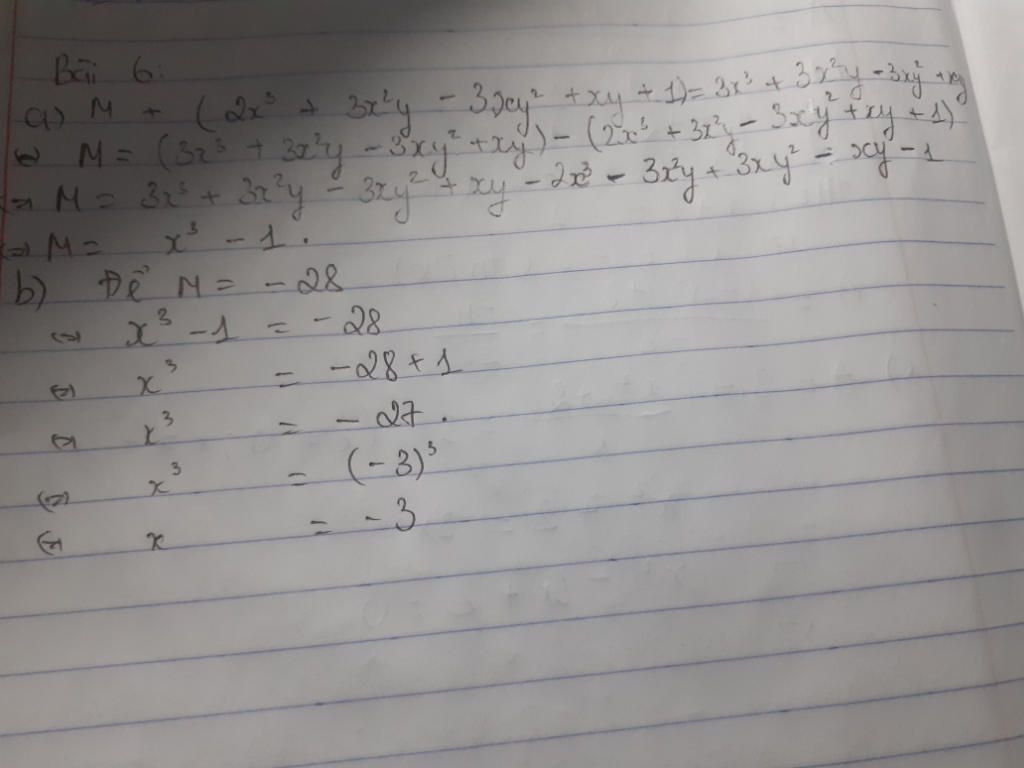 Bài 6:
a) M + (2x³ + 3x²y - 3xy² + xy + 1) = 3x³ + 3x²y - 3xy² + xy
⇔ M = (3x³ + 3x²y - 3xy² + xy) - (2x³ + 3x²y - 3xy² + xy + 1)
⇔ M = 3x³ + 3x²y - 3xy² + xy - 2x³ - 3x²y + 3xy² - xy - 1
⇔ M = x³ - 1.
b) Để M = - 28
⇔ x³ - 1 = - 28
⇔ x³ = - 28 + 1
⇔ x³ = - 27.
⇔ x³ = (- 3)³
⇔ x = - 3